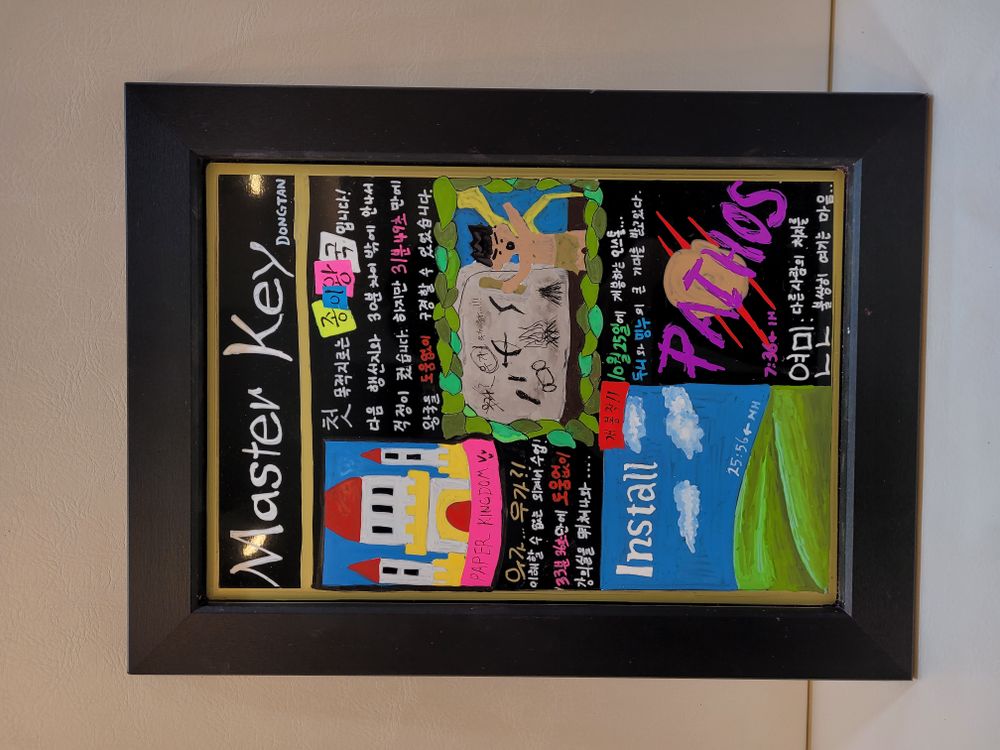 Master Key
DONGTAN
첫 목적지로는 종이왕국입니다!
다음 행선지와 30분 차이 밖에 안나서
걱정이 컸습니다. 하지만 31분 49초 만에
왕국을 도움없이 구경할 수 있었습니다.
PAPER KINGDOM
우가... 우가?!
이해할 수 없는 외계어 수업!
33분 36초만에 도움없이
강의실을 뛰쳐나와 ....
우가! 우가! ...!!!
개봉작!!
Install
25:56 ← NH
10월 25일에 개봉하는 인스톨...
두니와 밍누의 큰 기대를 받고있다.
PATHOS
7:36 ← 1H
연민: 다른사람의 처지를
불쌍히 여기는 마음..